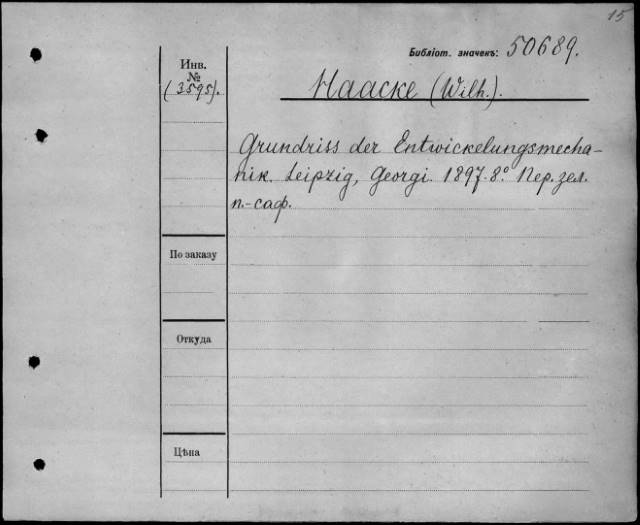 15
Библіот. значекъ: 50689.
Инв.
№
(3595).
Haacke (Wilh.).
Grundriss der Entwickelungsmecha-
nik. Leipzig, Georgi. 1897. 8º Пер. зел.
п.-саф.
По заказу
Откуда
Цѣна